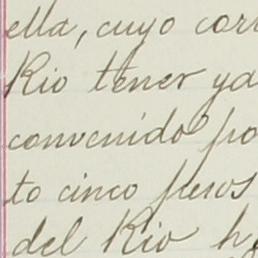 ella, cuyo corr
Rio tener ya
convenido po
to cinco pesos
del Rio h